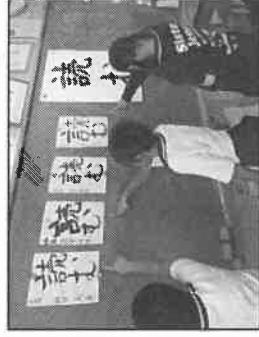 読む
読む
読む
読む
読む